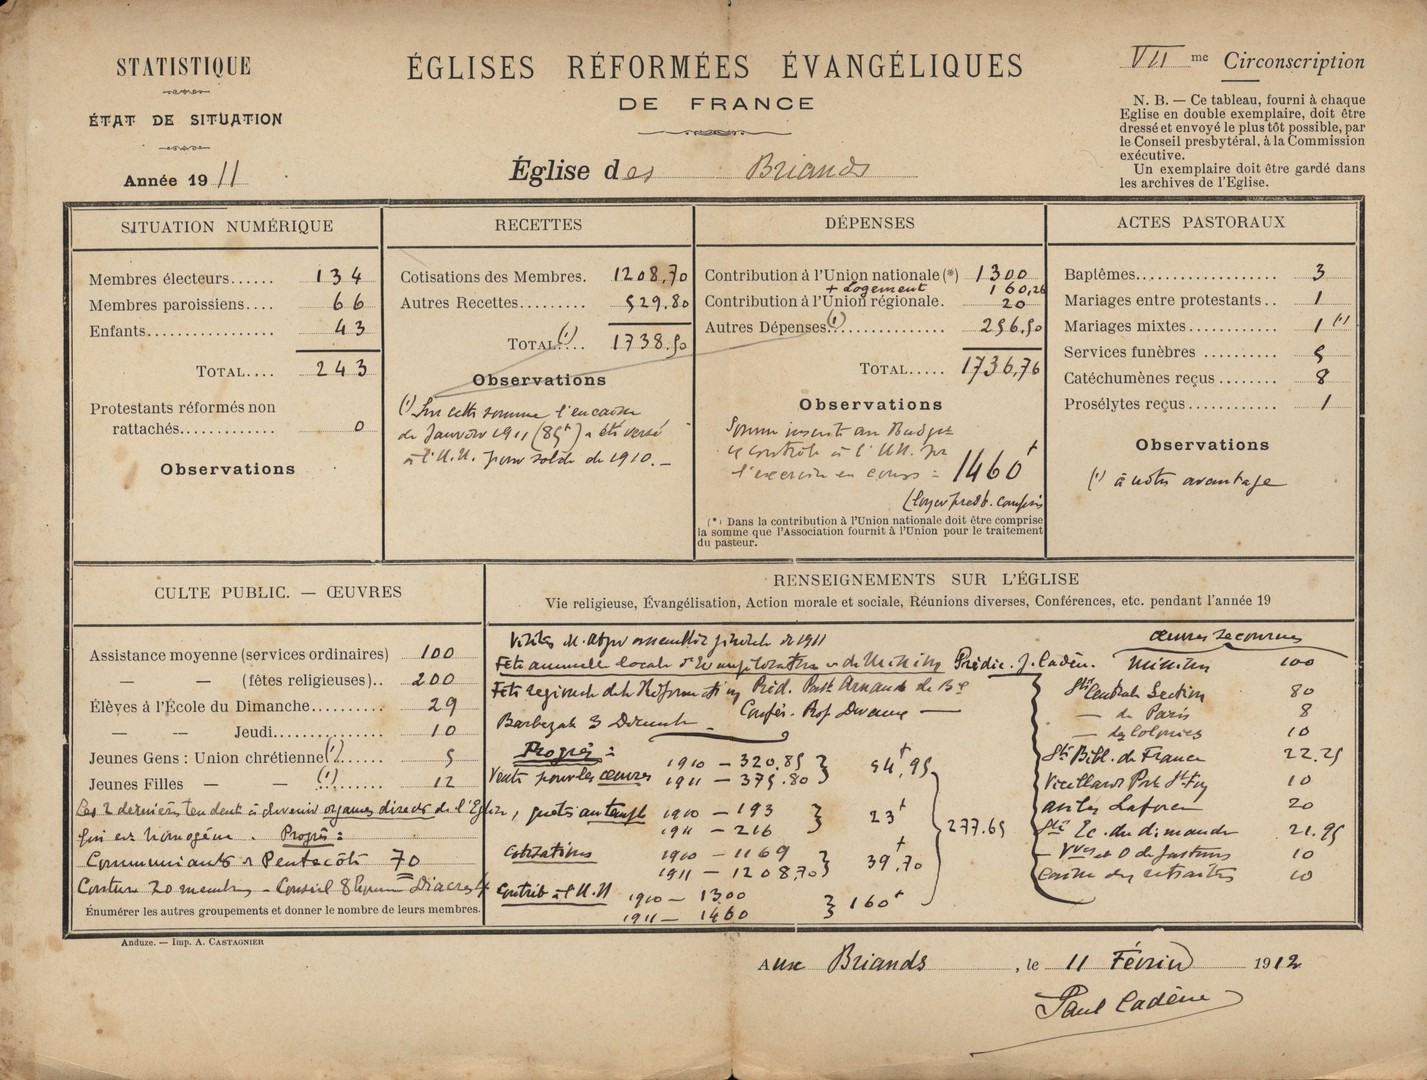 STATISTIQUE
ÉTAT DE SITUATION
Année 1911
ÉGLISES RÉFORMÉES ÉVANGÉLIQUES
DE FRANCE
Église des Briands
VII me Circonscription
N. B. — Ce tableau, fourni à chaque
Eglise en double exemplaire, doit être
dressé et envoyé le plus tôt possible, par
le Conseil presbytéral, à la Commission
exécutive.
Un exemplaire doit être gardé dans
les archives de l'Eglise.
SITUATION NUMÉRIQUE
Membres électeurs...... 134
Membres paroissiens.... 66
Enfants................ 43
TOTAL.... 243
Protestants réformés non
rattachés............ 0
Observations
RECETTES
Cotisations des Membres. 1208,70
Autres Recettes......... 529.80
TOTAL(1).... 1738.50
Observations
(1) Sur cette somme l'encaisse
de Janvier 1911 (85f) a été versé
à l'U.N. pour solde de 1910. —
DÉPENSES
Contribution à l'Union nationale (*) 1300
+ Logement 160,26
Contribution à l'Union régionale. 20
Autres Dépenses(1).............. 256,50
TOTAL..... 1736,76
Observations
Somme inscrite au Budget
à l'U.N. pr
l'exercice en cours = 1460f
(loyer presb. compris
(*) Dans la contribution à l'Union nationale doit être comprise
la somme que l'Association fournit à l'Union pour le traitement
du pasteur.
ACTES PASTORAUX
Baptêmes................. 3
Mariages entre protestants.. 1
Mariages mixtes........... 1 (1)
Services funèbres .......... 5
Catéchumènes reçus ........ 8
Prosélytes reçus............ 1
Observations
(1) à notre avantage
CULTE PUBLIC. — ŒUVRES
Assistance moyenne (services ordinaires) 100
— — (fêtes religieuses).. 200
Élèves à l'École du Dimanche.......... 29
— — Jeudi............... 10
Jeunes Gens : Union chrétienne(1). 5
Jeunes Filles — — (1)...... 12
Les 2 derniers tendent à devenir organes directs de l'Eglise,
qui est homogène. Progrès :
Communiants à Pentecôte 70
Couture 20 membres - Conseil 8
Énumérer les autres groupements et donner le nombre de leurs membres.
RENSEIGNEMENTS SUR L'ÉGLISE
Vie religieuse, Évangélisation, Action morale et sociale, Réunions diverses, Conférences, etc. pendant l'année 19
assemblée générale de 1911
Fête annuelle locale d'Evangélisation et de Missions Prédic. J. Cadène.
Fête régionale de la Réformation Préd. Past. Arnaud de
Barbezat 3 Décembre Confér. Prof.
Progrès :
Vente pour les œuvres 1910 — 320.85 } 54f,95
1911 — 375.80
quêtes au temple 1910 — 193 } 23f
1911 — 216
Cotisations 1910 — 1169 } 39f,70
1911 — 1208,70
Contrib à l'U.N 1910 — 1300 } 160f
1911 — 1460
277.65
Œuvres secourues
Missions 100
Sté Centrale Section 80
— de Paris 8
— des Colonies 10
Sté Bibl. de France 22.25
Vieillards Prot Ste Foy 10
Asiles Laforce 20
Sté Ec. du dimanche 21.95
— Vves et O de pasteurs 10
Caisse des retraites 10
Anduze. — Imp. A. CASTAGNIER
Aux Briands , le 11 Février 1912
Paul Cadène